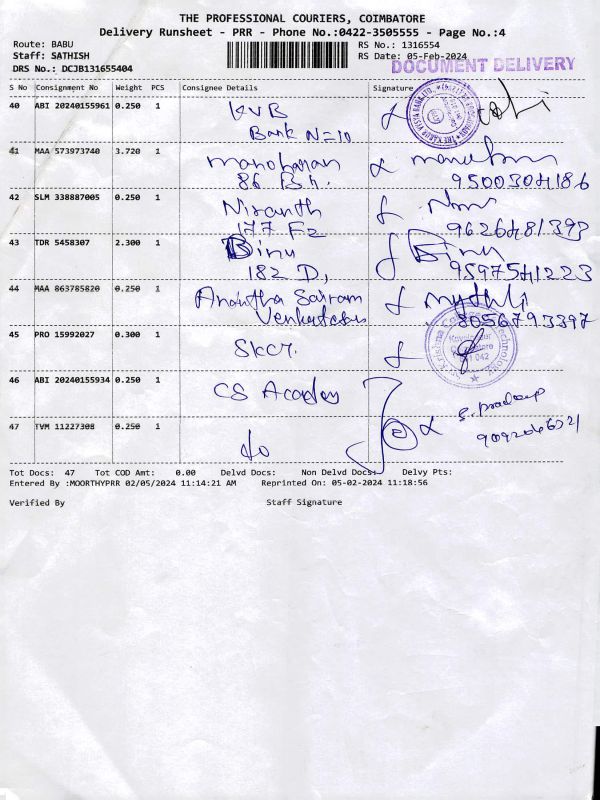 THE PROFESSIONAL COURIERS, COIMBATORE
Delivery Runsheet - PRR - Phone No.:0422-3505555 - Page No.:4
Route: BABU
RS No.: 1316554
Staff: SATHISH
RS Date: 05-Feb-2024
DRS No.: DCJB131655404
DOCUMENT DELIVERY
S No Consignment No Weight PCS Consignee Details Signature
40 ABI 20240155961 0.250 1 KVB
Bank N=10
41 MAA 573973740 3.720 1 manoharan
86 Bh.
9500304186
42 SLM 338887005 0.250 1 Niranth
177 F2
9626481393
43 TDR 5458307 2.300 1 Binu Binu
182 D, 9597541223
44 MAA 863785820 0.250 1 Anantha Sairam mythili
Venkatesu 8056793397
45 PRO 15992027 0.300 1 Skcr.
46 ABI 20240155934 0.250 1 CS Academy
S. pradeep
47 TVM 11227308 0.250 1 do
Tot Docs: 47 Tot COD Amt: 0.00 Delvd Docs: Non Delvd Docs: Delvy Pts:
Entered By :MOORTHYPRR 02/05/2024 11:14:21 AM Reprinted On: 05-02-2024 11:18:56
Verified By Staff Signature